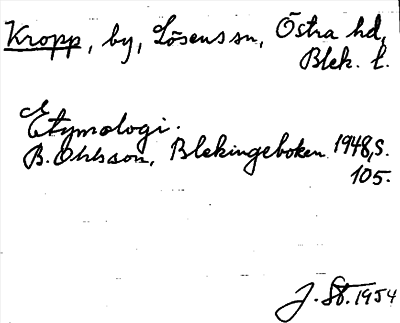 Kropp, by, Lösens sn, Östra hd,
Blek. l.
Etymologi.
B. Ohlsson, Blekingeboken 1948, s.
105.
J. St. 1954